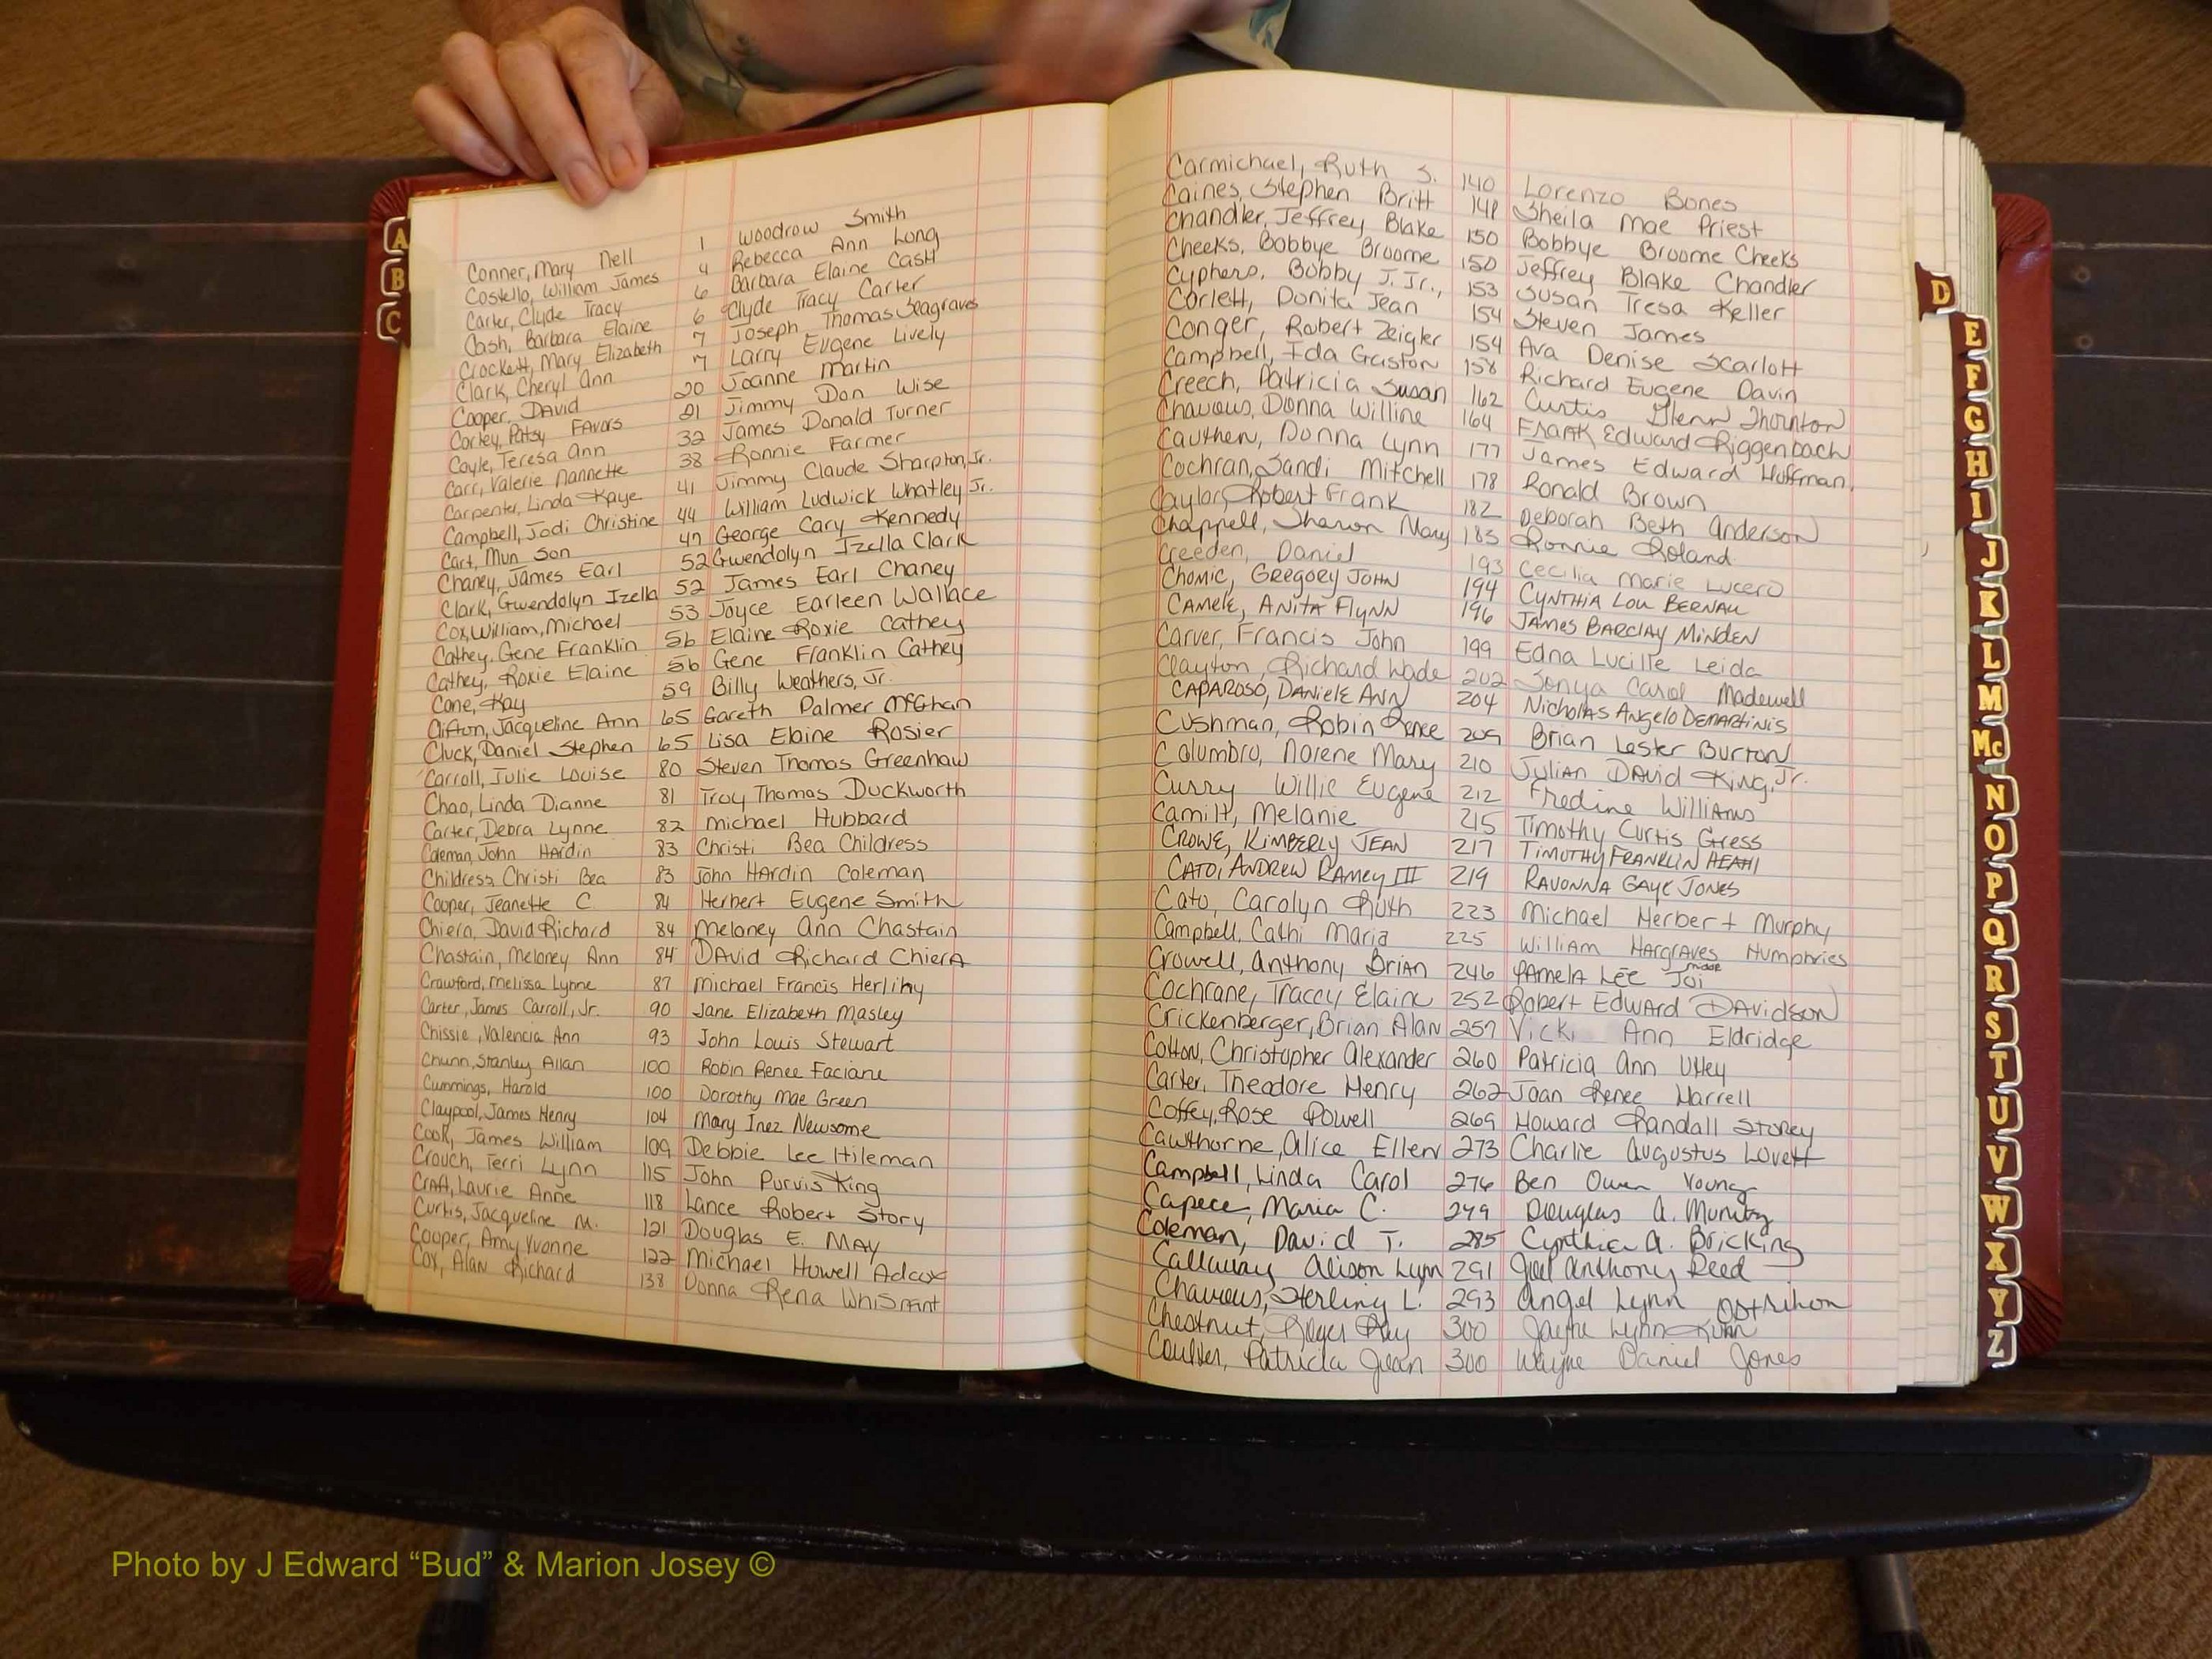 A
B
C
Conner, Mary Nell 1 Woodrow Smith
Costello, William James 4 Rebecca Ann Long
Carter, Clyde Tracy 6 Barbara Elaine Cash
Cash, Barbara Elaine 6 Clyde Tracy Carter
Crockett, Mary Elizabeth 7 Joseph Thomas Seagraves
Clark, Cheryl Ann 7 Larry Eugene Lively
Cooper, David 20 Joanne Martin
Corley, Patsy Favors 21 Jimmy Don Wise
Coyle, Teresa Ann 32 James Donald Turner
Carr, Valerie Nannette 38 Ronnie Farmer
Carpenter, Linda Kaye 41 Jimmy Claude Sharpton, Jr.
Campbell, Jodi Christine 44 William Ludwick Whatley Jr.
Cart, Mun Son 47 George Cary Kennedy
Chaney, James Earl 52 Gwendolyn Izella Clark
Clark, Gwendolyn Izella 52 James Earl Chaney
Cox, William, Michael 53 Joyce Earleen Wallace
Cathey, Gene Franklin 56 Elaine Roxie Cathey
Cathey, Roxie Elaine 56 Gene Franklin Cathey
Cone, Kay 59 Billy Weathers, Jr.
Clifton, Jacqueline Ann 65 Gareth Palmer McGhan
Cluck, Daniel Stephen 65 Lisa Elaine Rosier
Carroll, Julie Louise 80 Steven Thomas Greenhaw
Chao, Linda Dianne 81 Troy Thomas Duckworth
Carter, Debra Lynne 82 Michael Hubbard
Coleman, John Hardin 83 Christi Bea Childress
Childress, Christi Bea 83 John Hardin Coleman
Cooper, Jeanette C. 84 Herbert Eugene Smith
Chiera, David Richard 84 Meloney Ann Chastain
Chastain, Meloney Ann 84 David Richard Chiera
Crawford, Melissa Lynne 87 Michael Francis Herlihy
Carter, James Carroll, Jr. 90 Jane Elizabeth Masley
Chissie, Valencia Ann 93 John Louis Stewart
Chunn, Stanley Allan 100 Robin Renee Faciane
Cummings, Harold 100 Dorothy Mae Green
Claypool, James Henry 104 Mary Inez Newsome
Cook, James William 109 Debbie Lee Hileman
Crouch, Terri Lynn 115 John Purvis King
Craft, Laurie Anne 118 Lance Robert Story
Curtis, Jacqueline M. 121 Douglas E. May
Cooper, Amy Yvonne 122 Michael Howell Adcox
Cox, Alan Richard 138 Donna Rena Whisnant
Carmichael, Ruth S. 140 Lorenzo Bones
Caines, Stephen Britt 141 Sheila Mae Priest
Chandler, Jeffrey Blake 150 Bobbye Broome Cheeks
Cheeks, Bobbye Broome 150 Jeffrey Blake Chandler
Cyphers, Bobby J. Jr., 153 Susan Tresa Keller
Corlett, Donita Jean 154 Steven James
Conger, Robert Zeigler 154 Ava Denise Scarlott
Campbell, Ida Gaston 158 Richard Eugene Davin
Creech, Patricia Susan 162 Curtis Glenn Thornton
Chavous, Donna Willine 164 Frank Edward Riggenbach
Cauthen, Donna Lynn 177 James Edward Huffman,
Cochran, Sandi Mitchell 178 Ronald Brown
Caylor, Robert Frank 182 Deborah Beth Anderson
Chappell, Sharon Mary 185 Ronnie Roland
Creeden, Daniel 193 Cecilia Marie Lucero
Chomic, Gregory John 194 Cynthia Lou Bernau
Camele, Anita Flynn 196 James Barclay Minden
Carver, Francis John 199 Edna Lucille Leida
Clayton, Richard Wade 202 Sonya Carol Madewell
Caparoso, Daniele Ann 204 Nicholas Angelo Demartinis
Cushman, Robin Renee 209 Brian Lester Burton
Columbro, Norene Mary 210 Julian David King, Jr.
Curry Willie Eugene 212 Fredine Williams
Camilt, Melanie 215 Timothy Curtis Gress
Crowe, Kimberly Jean 217 Timothy Franklin Heath
Cato, Andrew Ramey III 219 Ravonna Gaye Jones
Cato, Carolyn Ruth 223 Michael Herbert Murphy
Campbell, Cathi Maria 225 William Hargraves Humphries
Crowell, Anthony Brian 246 Pamela Lee Joi
Cochrane, Tracey Elaine 252 Robert Edward Davidson
Crickenberger, Brian Alan 257 Vicki Ann Eldridge
Cotton, Christopher Alexander 260 Patricia Ann Utley
Carter, Theodore Henry 262 Joan Renee Harrell
Coffey, Rose Powell 269 Howard Randall Storey
Cawthorne, Alice Ellen 273 Charlie Augustus Lovett
Campbell, Linda Carol 276 Ben Owen Young
Capece, Maria C. 279 Douglas A.
Coleman, David T. 285 Cynthia A. Bricking
Callaway Alison Lynn 291 Joel Anthony Reed
Chavous, Sterling L. 293 Angel Lynn
Chestnut, Roger Ray 300 Jayne Lynn Kuhn
Coulter, Patricia Jean 300 Wayne Daniel Jones
D
E
F
G
H
I
J
K
L
M
Mc
N
O
P
Q
R
S
T
U
V
W
X
Y
Z
Photo by J Edward “Bud” & Marion Josey ©